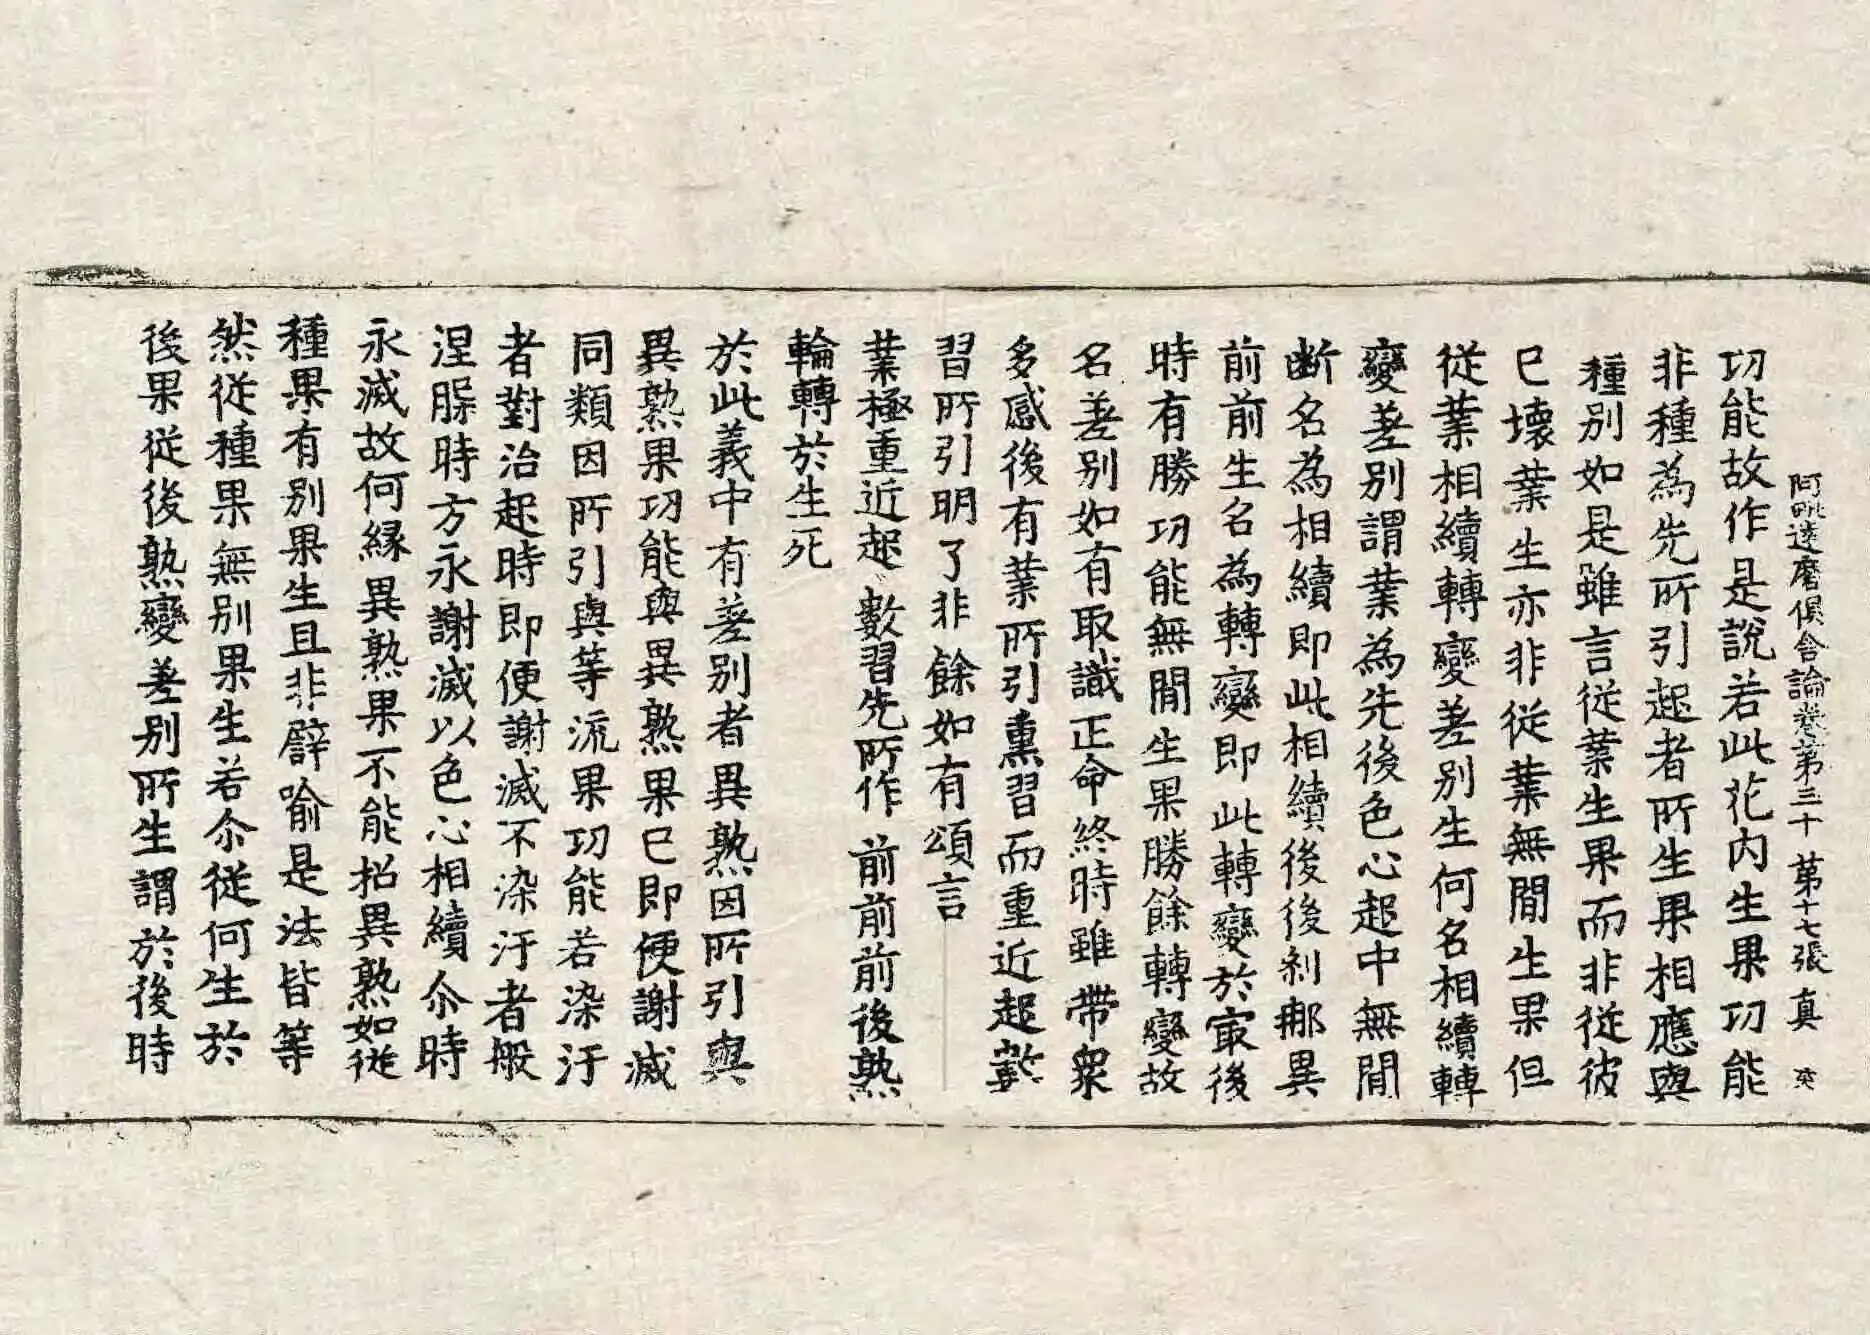 阿毗達磨俱舍論卷第三十 第十七張 真
功能故作是說若此花內生果功能
非種為先所引起者所生果相應與
種別如是雖言從業生果而非從彼
已壞業生亦非從業無間生果但
從業相續轉變差別生何名相續轉
變差別謂業為先後色心起中無間
斷名為相續即此相續後後刹那異
前前生名為轉變即此轉變於㝡後
時有勝功能無間生果勝餘轉變故
名差別如有取識正命終時雖帶衆
多感後有業所引熏習而重近起數
習所引明了非餘如有頌言
業極重近起 數習先所作 前前前後熟
輪轉於生死
於此義中有差別者異熟因所引與
異熟果功能與異熟果已即便謝滅
同類因所引與等流果功能若染汙
者對治起時即便謝滅不染汙者般
涅槃時方永謝滅以色心相續尒時
永滅故何緣異熟果不能招異熟如從
種果有別果生且非譬喻是法皆等
然從種果無別果生若尒從何生於
後果從後熟變差別所生謂於後時